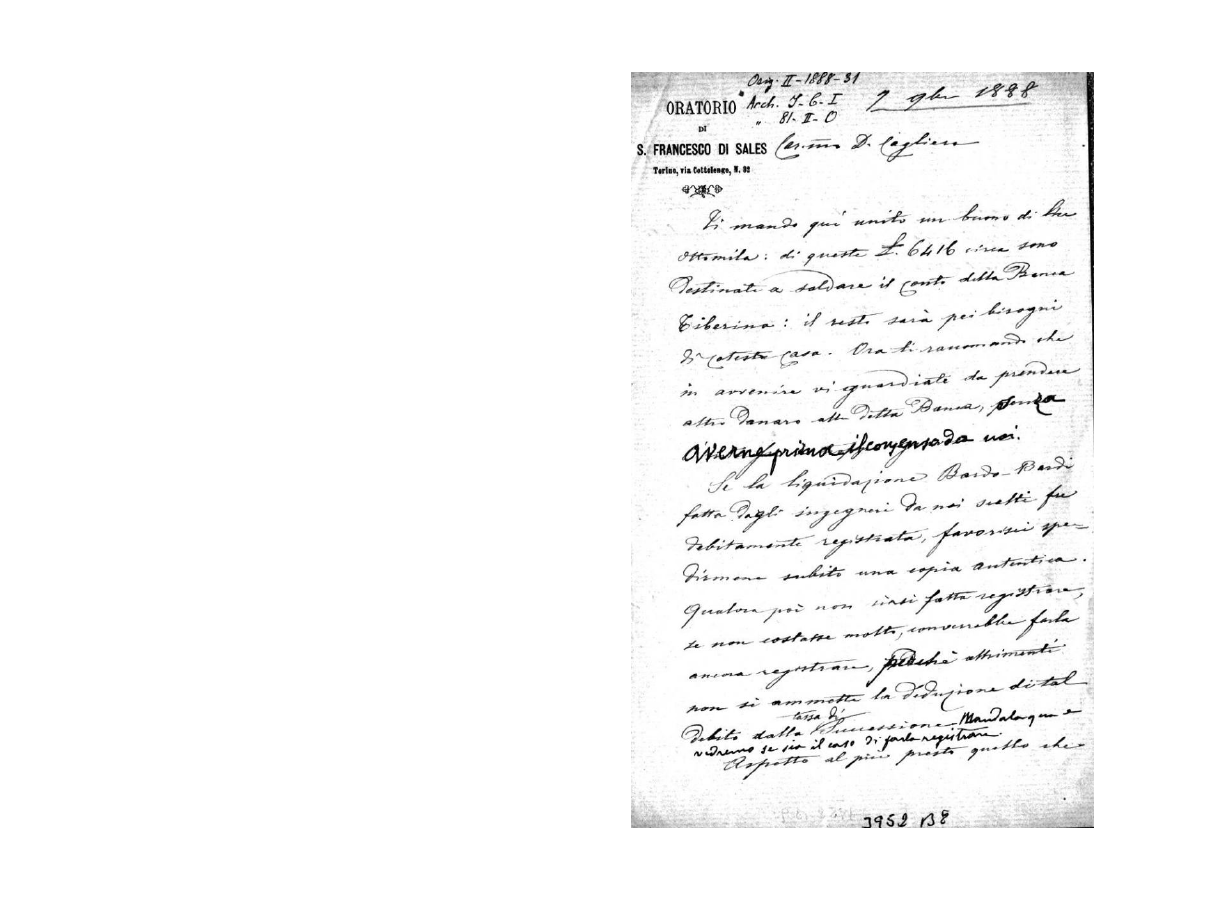 Orig. II-1888-31
ORATORIO
DI
S. FRANCESCO DI SALES
Torino, via Cottolengo, N. 32
Arch. J-C-I
" 81-II-O
7 9bre 1888
Car.mo D. Cagliero
Ti mando quì unito un buono di lire
Ottomila: di queste £. 6416 circa sono
destinate a saldare il conto della Banca
Tiberina: il resto sarà pei bisogni
di cotesta casa. Ora ti raccomando che
in avvenire vi guardiate da prendere
altro danaro alla detta Banca, senza
averne prima il consenso da noi.
Se la liquidazione Bardi
fatta dagli ingegneri da noi scelti fu
debitamente registrata, favorisci spe=
dirmene subito una copia autentica.
Qualora poi non siasi fatta registrare,
se non costasse molto, converrebbe farla
ancora registrare, perchè altrimenti
non si ammette la deduzione di tal
debito dalla tassa di Successione. Mandala qua e
vedremo se sia il caso di farla registrare.
Aspetto al più presto quello che
3952 B8